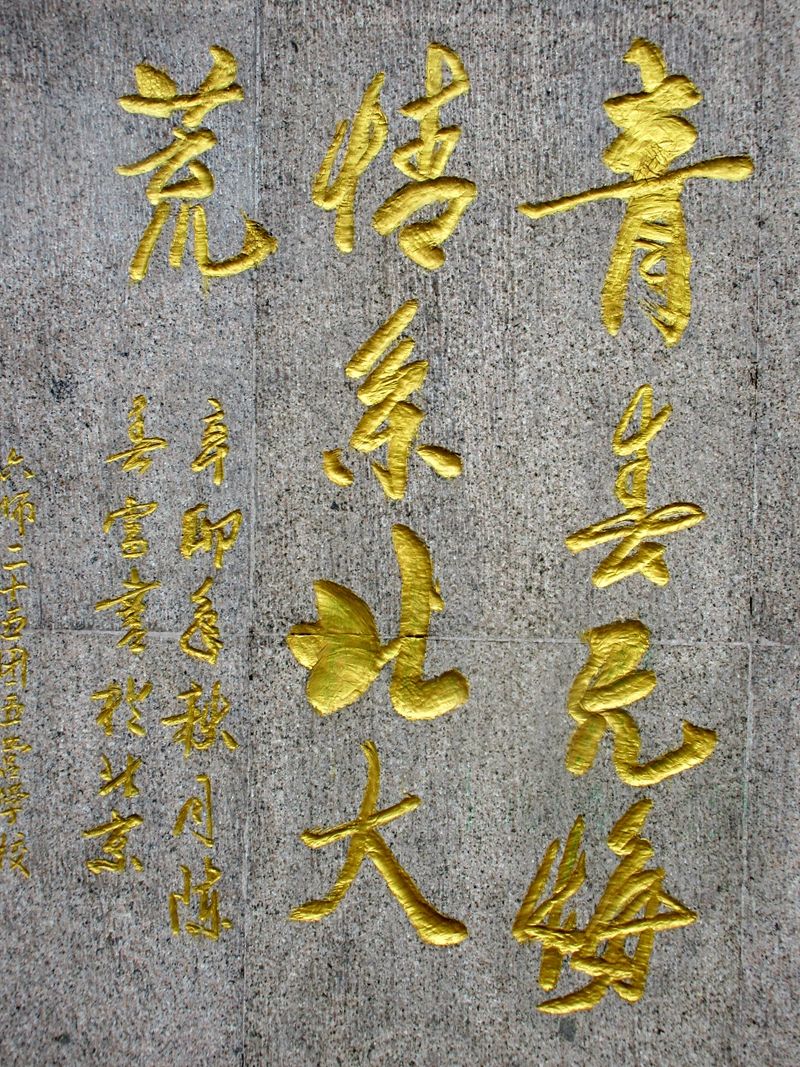 青春无悔
情系北大
荒
辛卯年秋月陈
善富书于北京
六师二十五团五五高学校